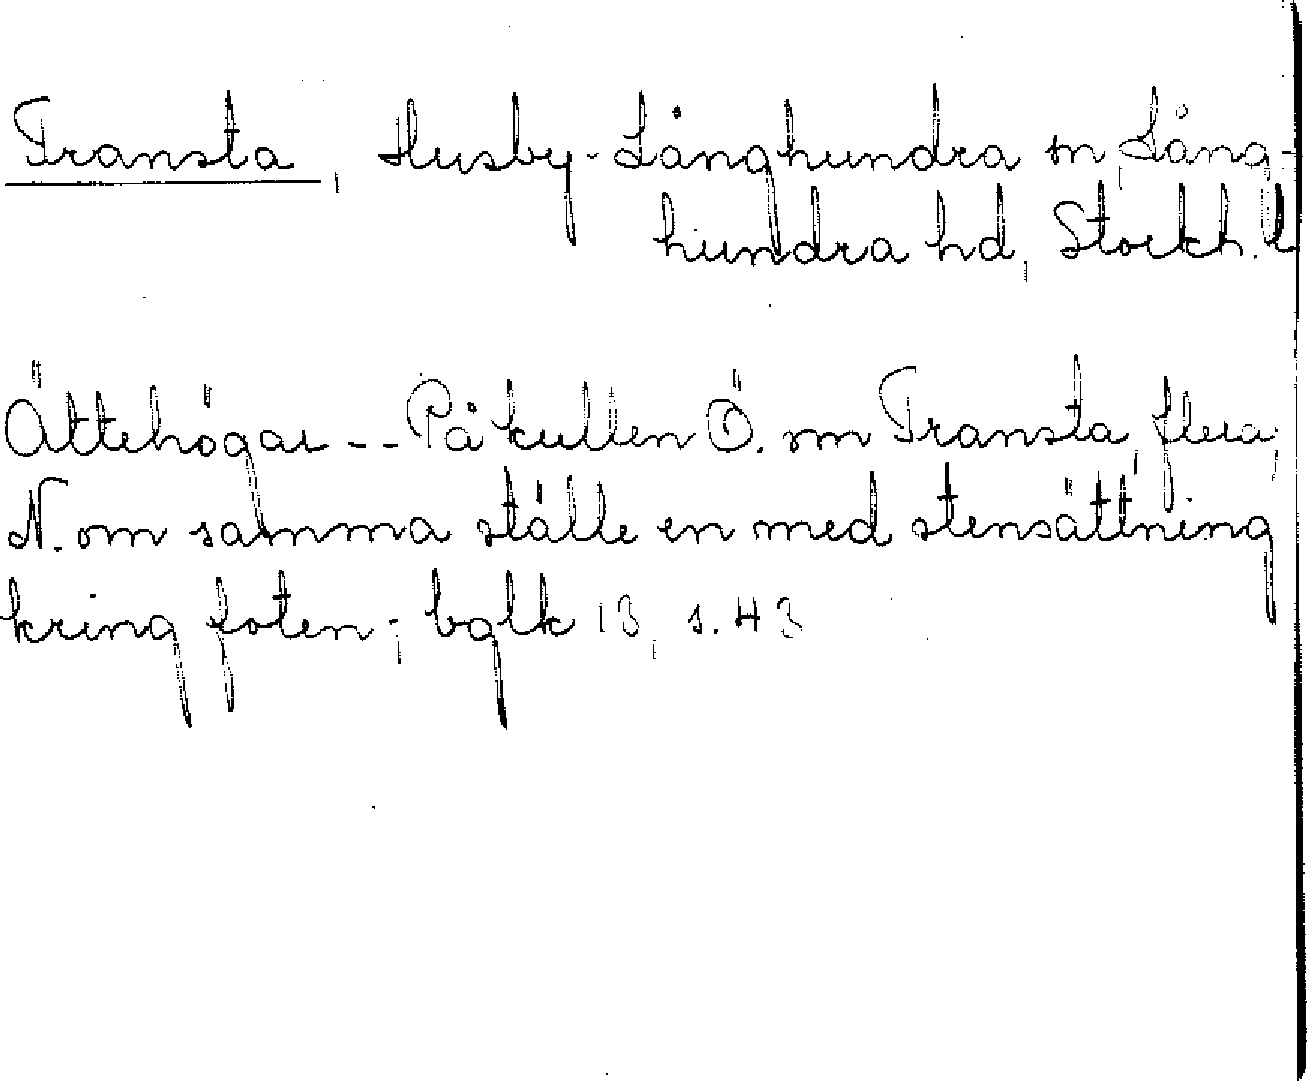 Transta, Husby-Långhundra sn, Lång-
hundra hd, Stockh. l
Ättehögar -- På kullen Ö. om Transta, flera;
N. om samma ställe en med stensättning
kring foten; bglk 13, s. 43